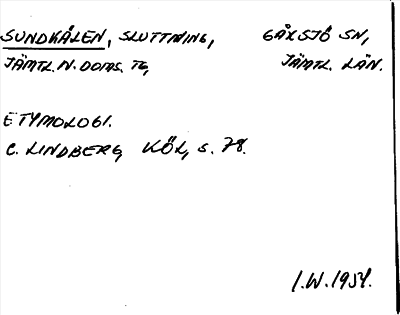 SUNDKÅLEN, SLUTTNING, GÅXSJÖ SN,
JÄMTL. N. DOMS. TG, JÄMTL. LÄN.
ETYMOLOGI.
C. LINDBERG, KÖL, s. 78.
I.W. 1954.